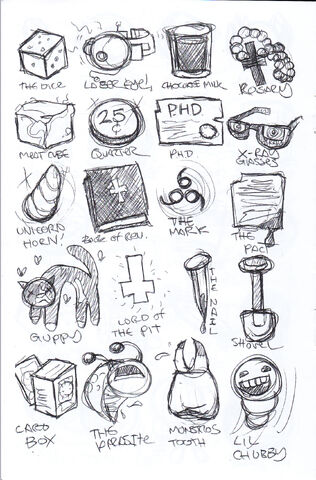 THE DICE
LASER EYE!
CHOCOLATE MILK
ROSARY
25
¢
PHD
MEAT CUBE
QUARTER
PHD
X-RAY
GLASSES
UNICORN
HORN!
BOOK OF REV.
THE
MARK
THE
PACT
GUPPY
LORD OF
THE PIT
THE NAIL
SHOVEL
CARD
BOX
THE
PARASITE
MONSTROS
TOOTH
LIL
CHUBBY